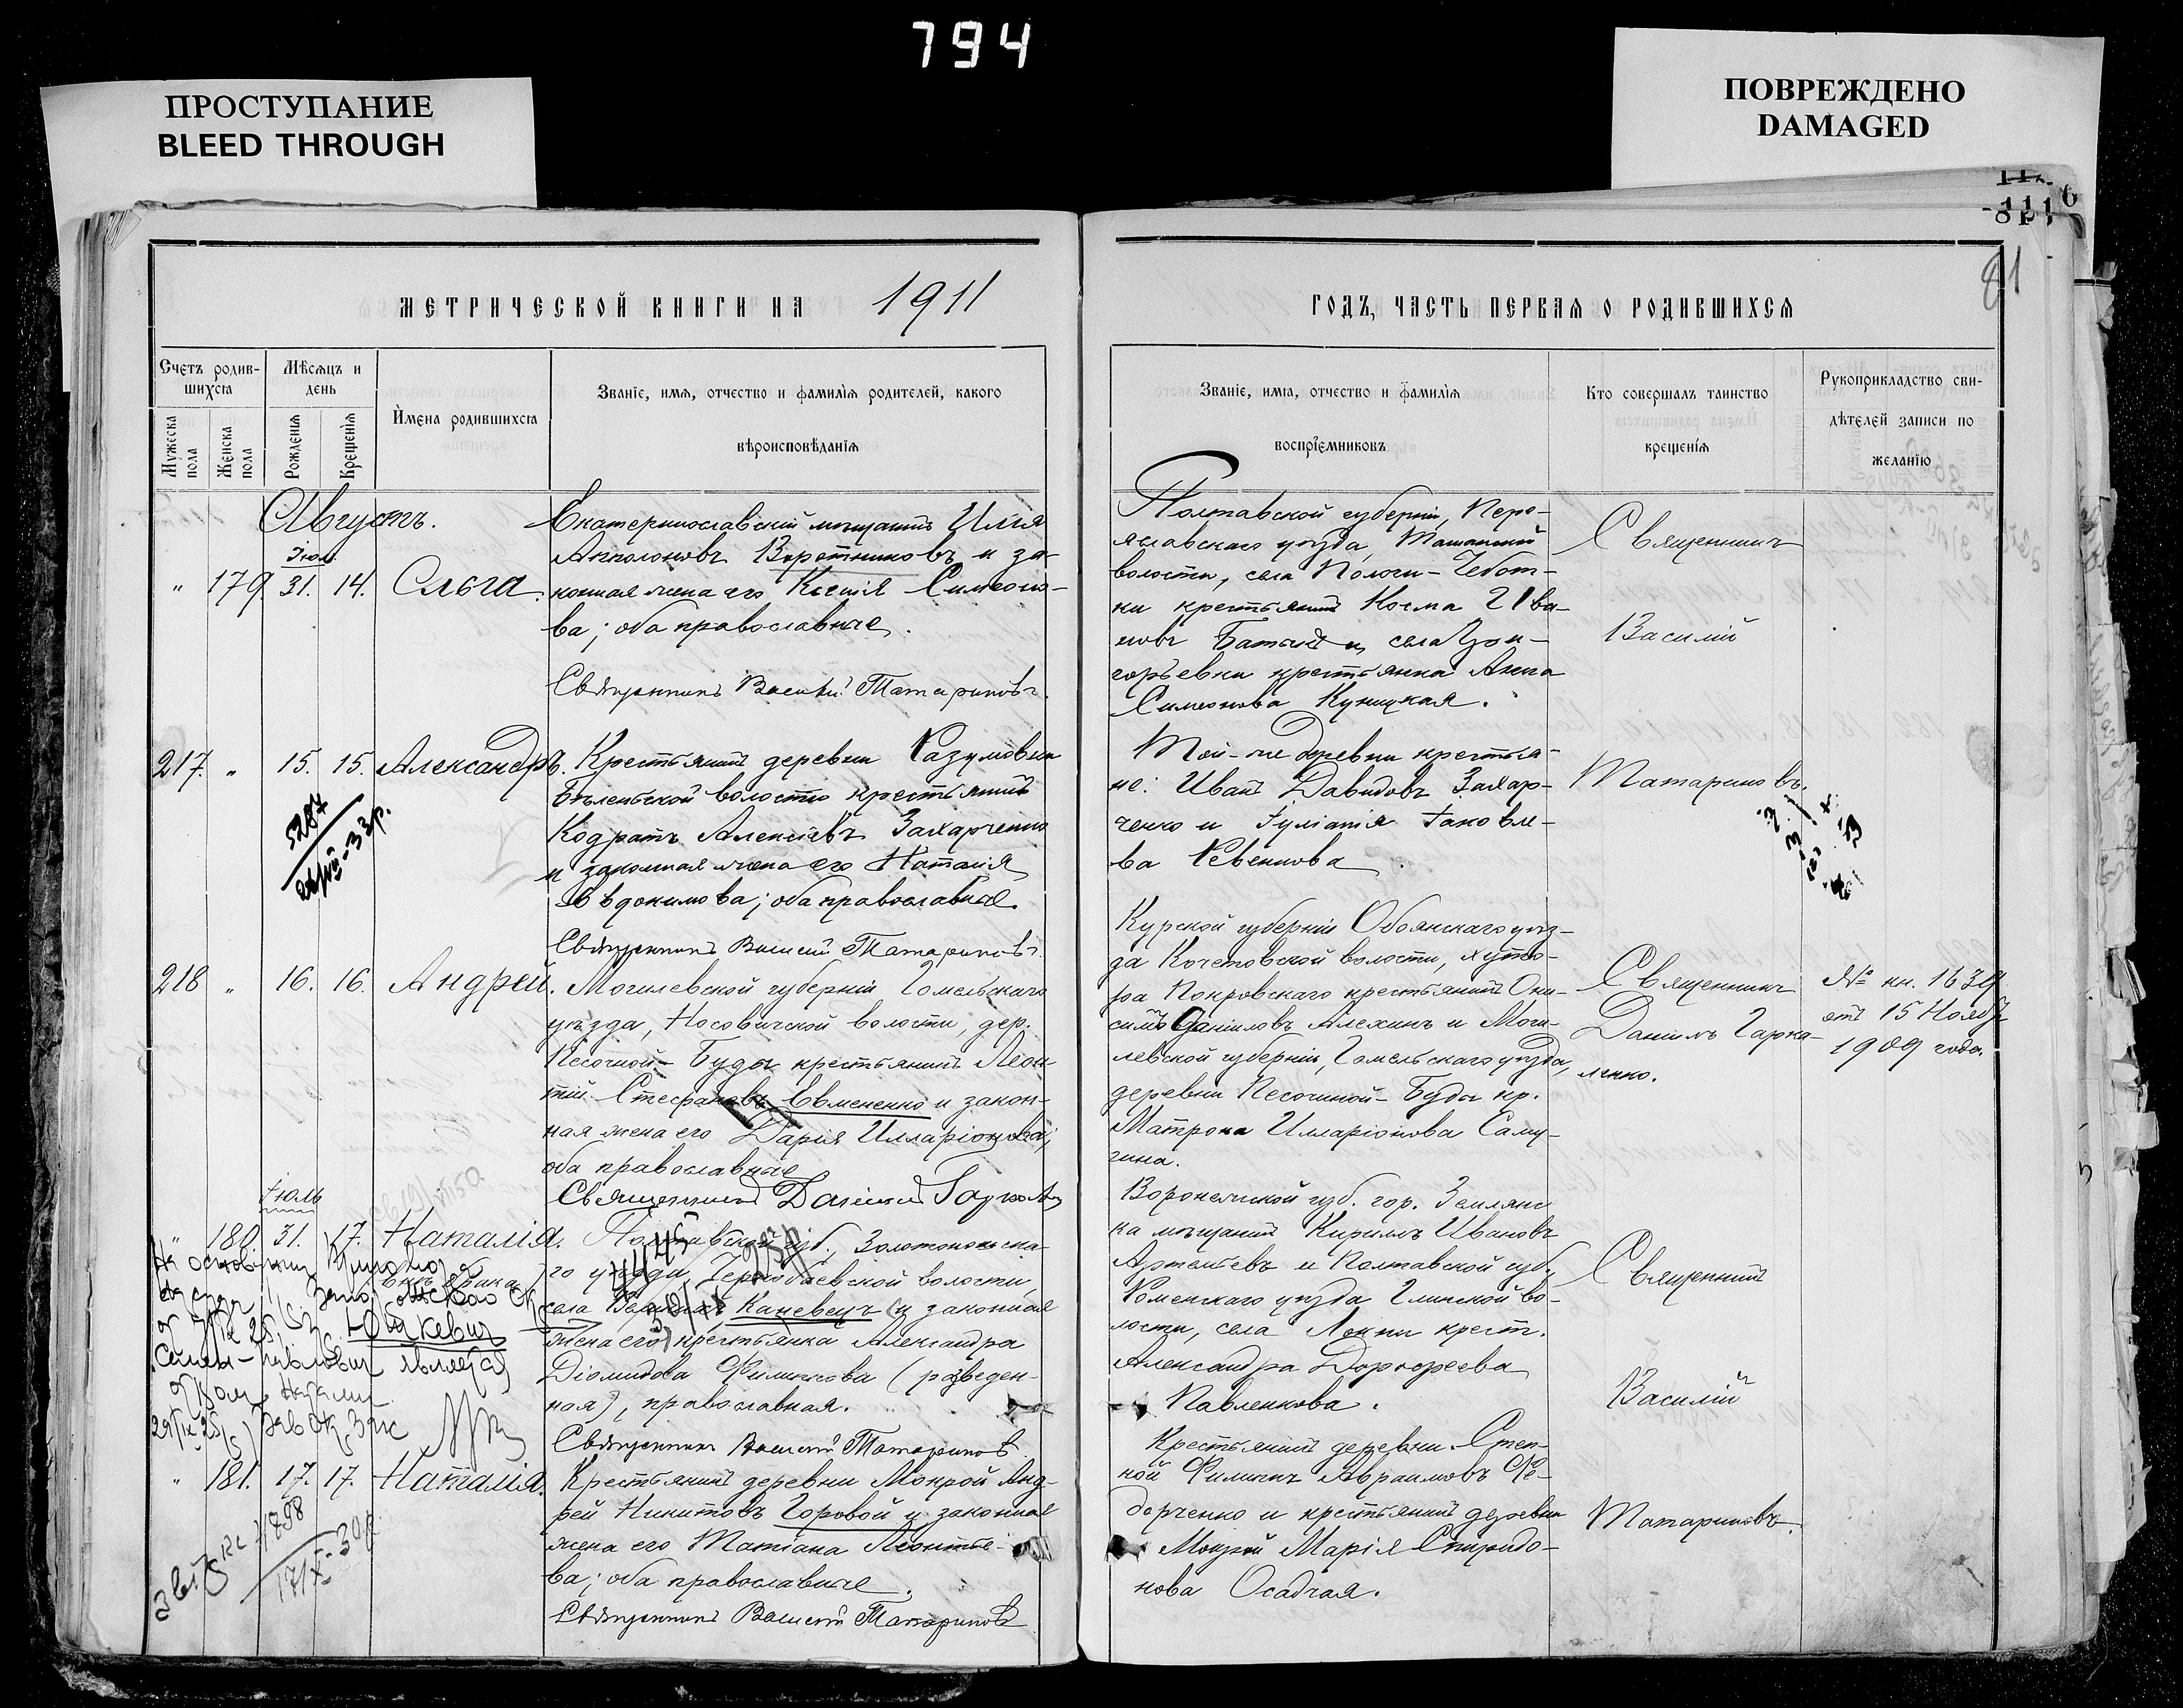 794
ПРОСТУПАНИЕ
BLEED THROUGH
ПОВРЕЖДЕНО
DAMAGED
81
МЕТРИЧЕСКОЙ КНИГИ НА 1911
ГОДЪ, ЧАСТЬ ПЕРВАЯ О РОДИВШИХСЯ
Счетъ родив-
шихся
Мужеска пола
Женска пола
Мѣсяцъ и
день
Рожденія
Крещенія
Имена родившихся
Званіе, имя, отчество и фамилія родителей, какого
вѣроисповѣданія
Званіе, имя, отчество и фамилія
воспріемниковъ
Кто совершалъ таинство
крещенія
Рукоприкладство сви-
дѣтелей записи по
желанію
Августъ.
Іюл
" 179. 31. 14. Ольга.
Екатеринославскій мѣщанинъ Илія
Апполоновъ Воротниковъ и за-
конная жена его Ксенія Симеоно-
ва; оба православные.
Священникъ Василій Татариновъ.
Полтавской губерніи, Пере-
яславскаго уѣзда, Ташанской
волости, села Пологи-Чебот-
ки крестьянинъ Косма Ива-
новъ и села
крестьянка Анна
Симеонова Куницкая.
Священникъ
Василій
Татариновъ.
217. " 15. 15. Александръ.
Крестьянинъ деревни Разумовки
Бѣленьской волости крестьянинъ
Кодратъ Алексѣевъ Захарченко
и законная жена его Наталія
Евдокимова; оба православные.
Священникъ Василій Татариновъ.
Той-же деревни крестья-
не: Иванъ Давидовъ Захар-
ченко и Іуліанія Іаковле-
ва Ревенкова.
218 " 16. 16. Андрей.
Могилевской губерніи Гомельскаго
уѣзда, Носовичской волости, дер.
Песочной-Буды крестьянинъ Леон-
тій Стефановъ Евмененко и закон-
ная жена его Дарія Илларіонова;
оба православные
Священникъ Даніилъ
Курской губерніи Обоянскаго уѣз-
да Кочетовской волости, хуто-
ра Покровскаго крестьянинъ Они-
симъ Даніиловъ Алехинъ и Моги-
левской губерніи, Гомельскаго уѣзда,
деревни Песочной-Буды кр.
Матрона Илларіонова Саму-
гина.
Священникъ
Даніилъ Гарка-
ленко.
№ кн. 1639
отъ 15 Ноябр
1909 года.
Іюль
" 180. 31. 17. Наталія.
Полтавской губ., Золотоношска-
го уѣзда, Чернобаевской волости,
села Каневецъ и законная
жена его крестьянка Александра
Діомидова Филиппова (разведен-
ная), православная.
Священникъ Василій Татариновъ
Воронежской губ. гор. Землянс
ка мѣщанинъ Кириллъ Ивановъ
Артемьевъ и Полтавской губ.,
Роменскаго уѣзда Глинской во-
лости, села Локни крест.
Александра Дорофеева
Павленкова.
Священникъ
Василій
Татариновъ.
" 181. 17. 17. Наталія.
Крестьянинъ деревни Мокрой Анд-
рей Никитовъ Горовой и законная
жена его Татіана Леонтье-
ва; оба православные.
Священникъ Василій Татариновъ
Крестьянинъ деревни Степ-
ной Филиппъ Авраамовъ Фе-
дорченко и крестьянинъ деревни
Мокрой Марія Спиридо-
нова Осадчая.